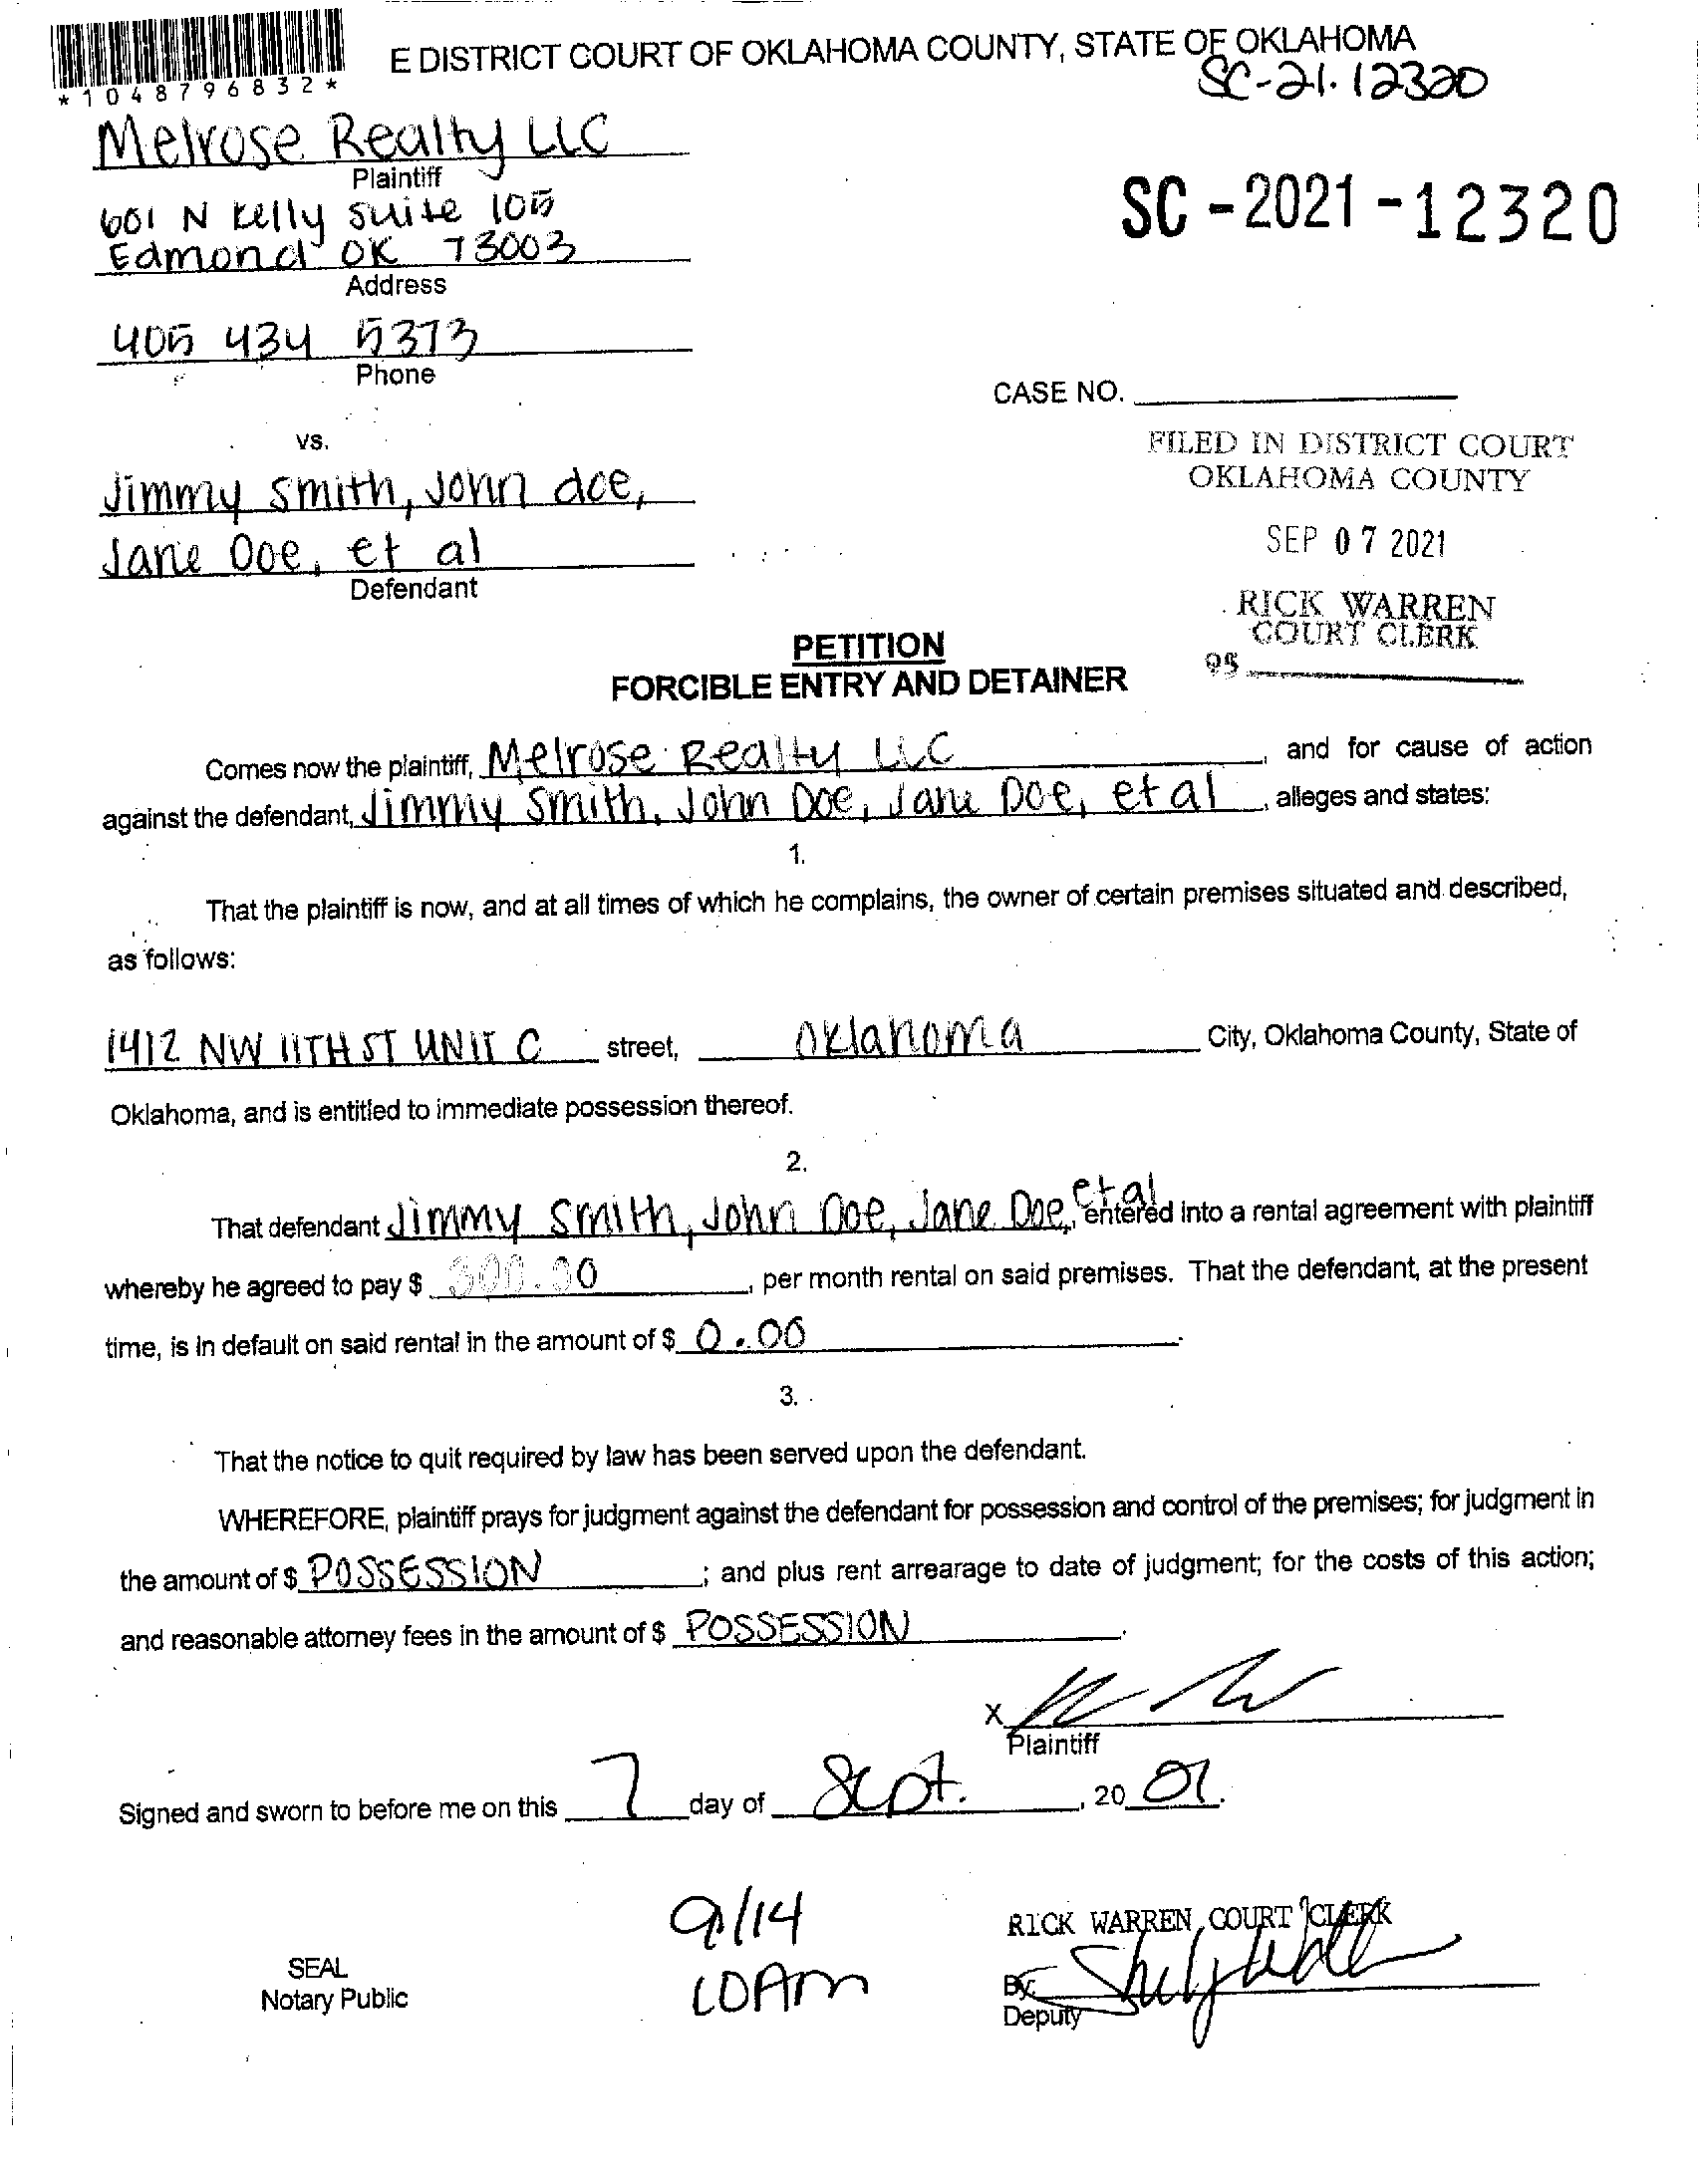 E DISTRICT COURT OF OKLAHOMA COUNTY, STATE OF OKLAHOMA
*1048796832*
SC-21-12320
Melrose Realty LLC
Plaintiff
SC-2021-12320
601 N Kelly Suite 105
Edmond OK 73003
Address
405 434 5373
Phone
CASE NO.
vs.
FILED IN DISTRICT COURT
OKLAHOMA COUNTY
Jimmy Smith, John doe,
SEP 07 2021
Jane Doe, et al
Defendant
RICK WARREN
COURT CLERK
PETITION
FORCIBLE ENTRY AND DETAINER
Comes now the plaintiff, Melrose Realty LLC, and for cause of action
against the defendant, Jimmy Smith, John Doe, Jane Doe, et al, alleges and states:
1.
That the plaintiff is now, and at all times of which he complains, the owner of certain premises situated and described,
as follows:
1412 NW 11TH ST UNIT C street, Oklahoma City, Oklahoma County, State of
Oklahoma, and is entitled to immediate possession thereof.
2.
That defendant Jimmy Smith, John Doe, Jane Doe, et al entered into a rental agreement with plaintiff
whereby he agreed to pay $ 300.00, per month rental on said premises. That the defendant, at the present
time, is in default on said rental in the amount of $ 0.00.
3.
That the notice to quit required by law has been served upon the defendant.
WHEREFORE, plaintiff prays for judgment against the defendant for possession and control of the premises; for judgment in
the amount of $ POSSESSION; and plus rent arrearage to date of judgment; for the costs of this action;
and reasonable attorney fees in the amount of $ POSSESSION.
X
Plaintiff
Signed and sworn to before me on this 7 day of Sept., 20
9/14
10AM
RICK WARREN, COURT CLERK
SEAL
Notary Public
By:
Deputy